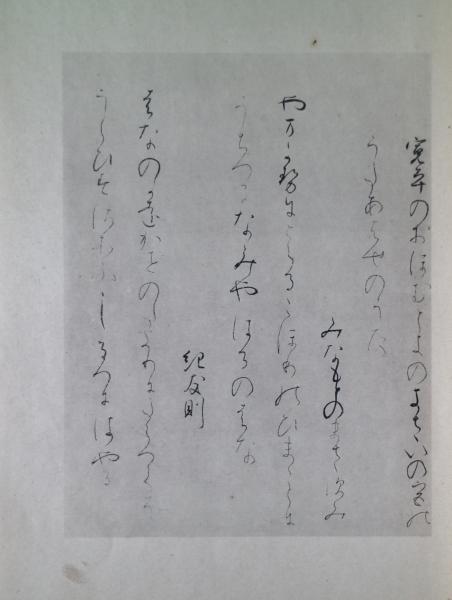 寛平のおほむときのきさいの宮の
うたあはせのうた
みなもとのまさずみ
やまかぜにとくるこほりのひまごとに
うちいづるなみやはるのはな
紀友則
はなのかをかぜのたよりにたぐへてぞ
うぐひすさそふしるべにはやる